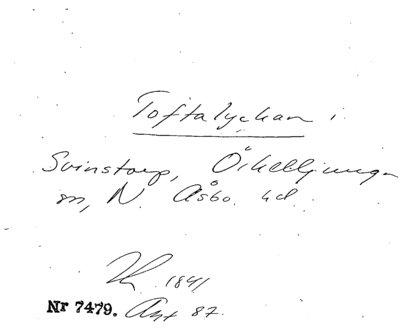 Toftalyckan i
Svinstorp, Örkelljunga
sn, N. Åsbo hd
1841
Nr 7479. Akt 87.